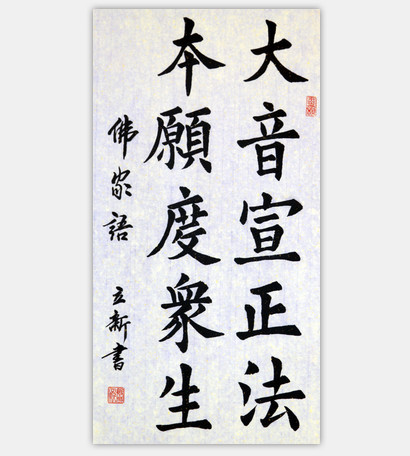 大音宣正法
本願度衆生
佛家語 立新書